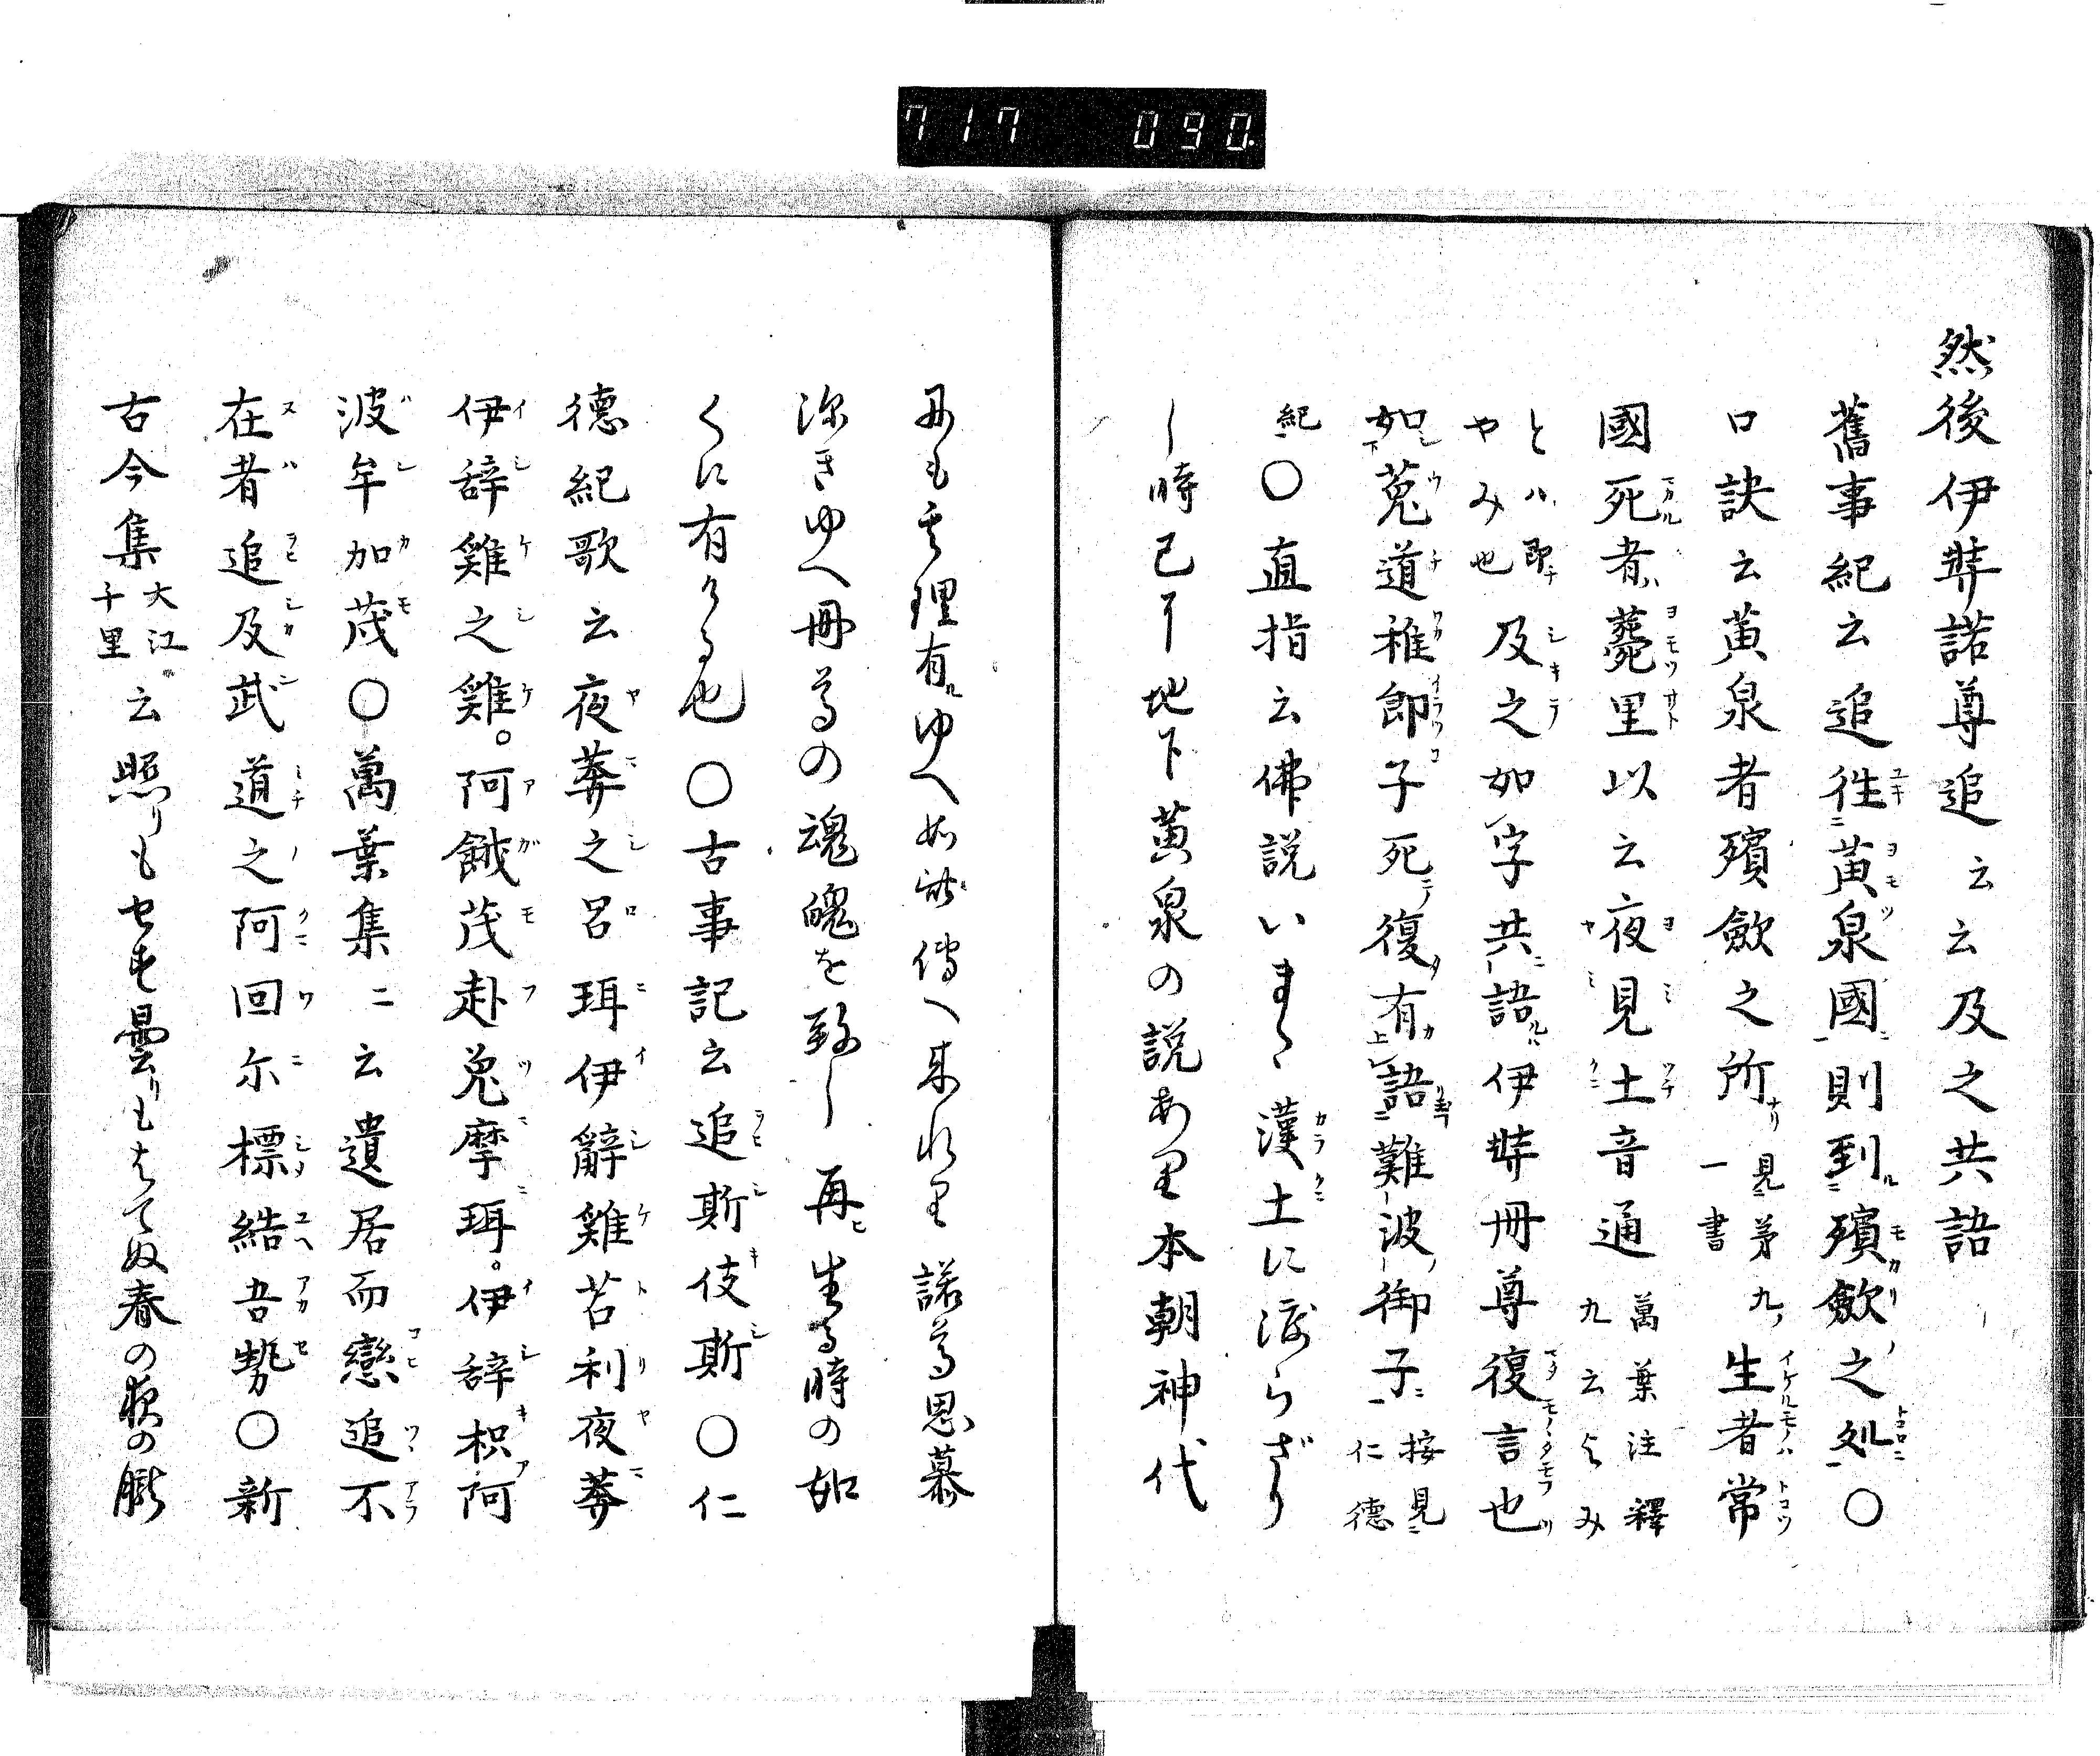 717 090.
然後伊弉諾尊追云云及之共語
舊事紀云追徃黄泉國則到殯歛之処〇
口訣云黄泉者殯歛之所 見第九一書 生者常
國死者薨里以云夜見土音通 萬葉注釋九云よみ
とハ即やみ也 及之如字共語伊弉冊尊復言也
如菟道稚郎子死復有語難波御子 按見仁德
紀〇直指云佛説いまだ漢土に渡らざり
し時已ニ地下黄泉の説あり本朝神代
再も其理有ルゆへ如此傳へ来れり諾尊思慕
深きゆへ冊尊の魂魄を致し再ヒ生る時の如
くに有ける也〇古事記云追斯伎斯〇仁
德紀歌云夜莽之呂珥伊辭雞苫利夜莽
伊辞雞之雞。阿餓茂赴菟摩珥。伊辞枳阿
波牟加茂〇萬葉集ニ云遺居而戀追不
在者追及武道之阿回尓標結吾勢〇新
古今集 大江千里 云照りもせす曇りもはてぬ春の夜の朧